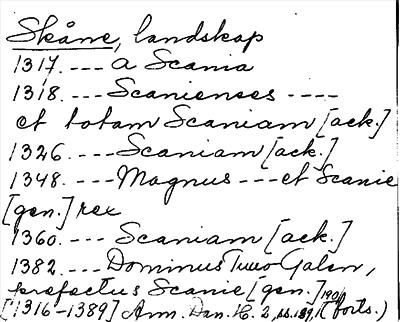 Skåne, landskap
1317. --- a Scania
1318. --- Scanienses ----
et totam Scaniam [ack.]
1326. --- Scaniam [ack.]
1348. --- Magnus --- et Scanie
[gen.] rex
1360. --- Scaniam [ack.]
1382. --- Dominus Tuvo Galen,
prefectus Scanie [gen.]
[1316-1389] Ann. Dan. H. 2, ss. 189, 190, (forts.)